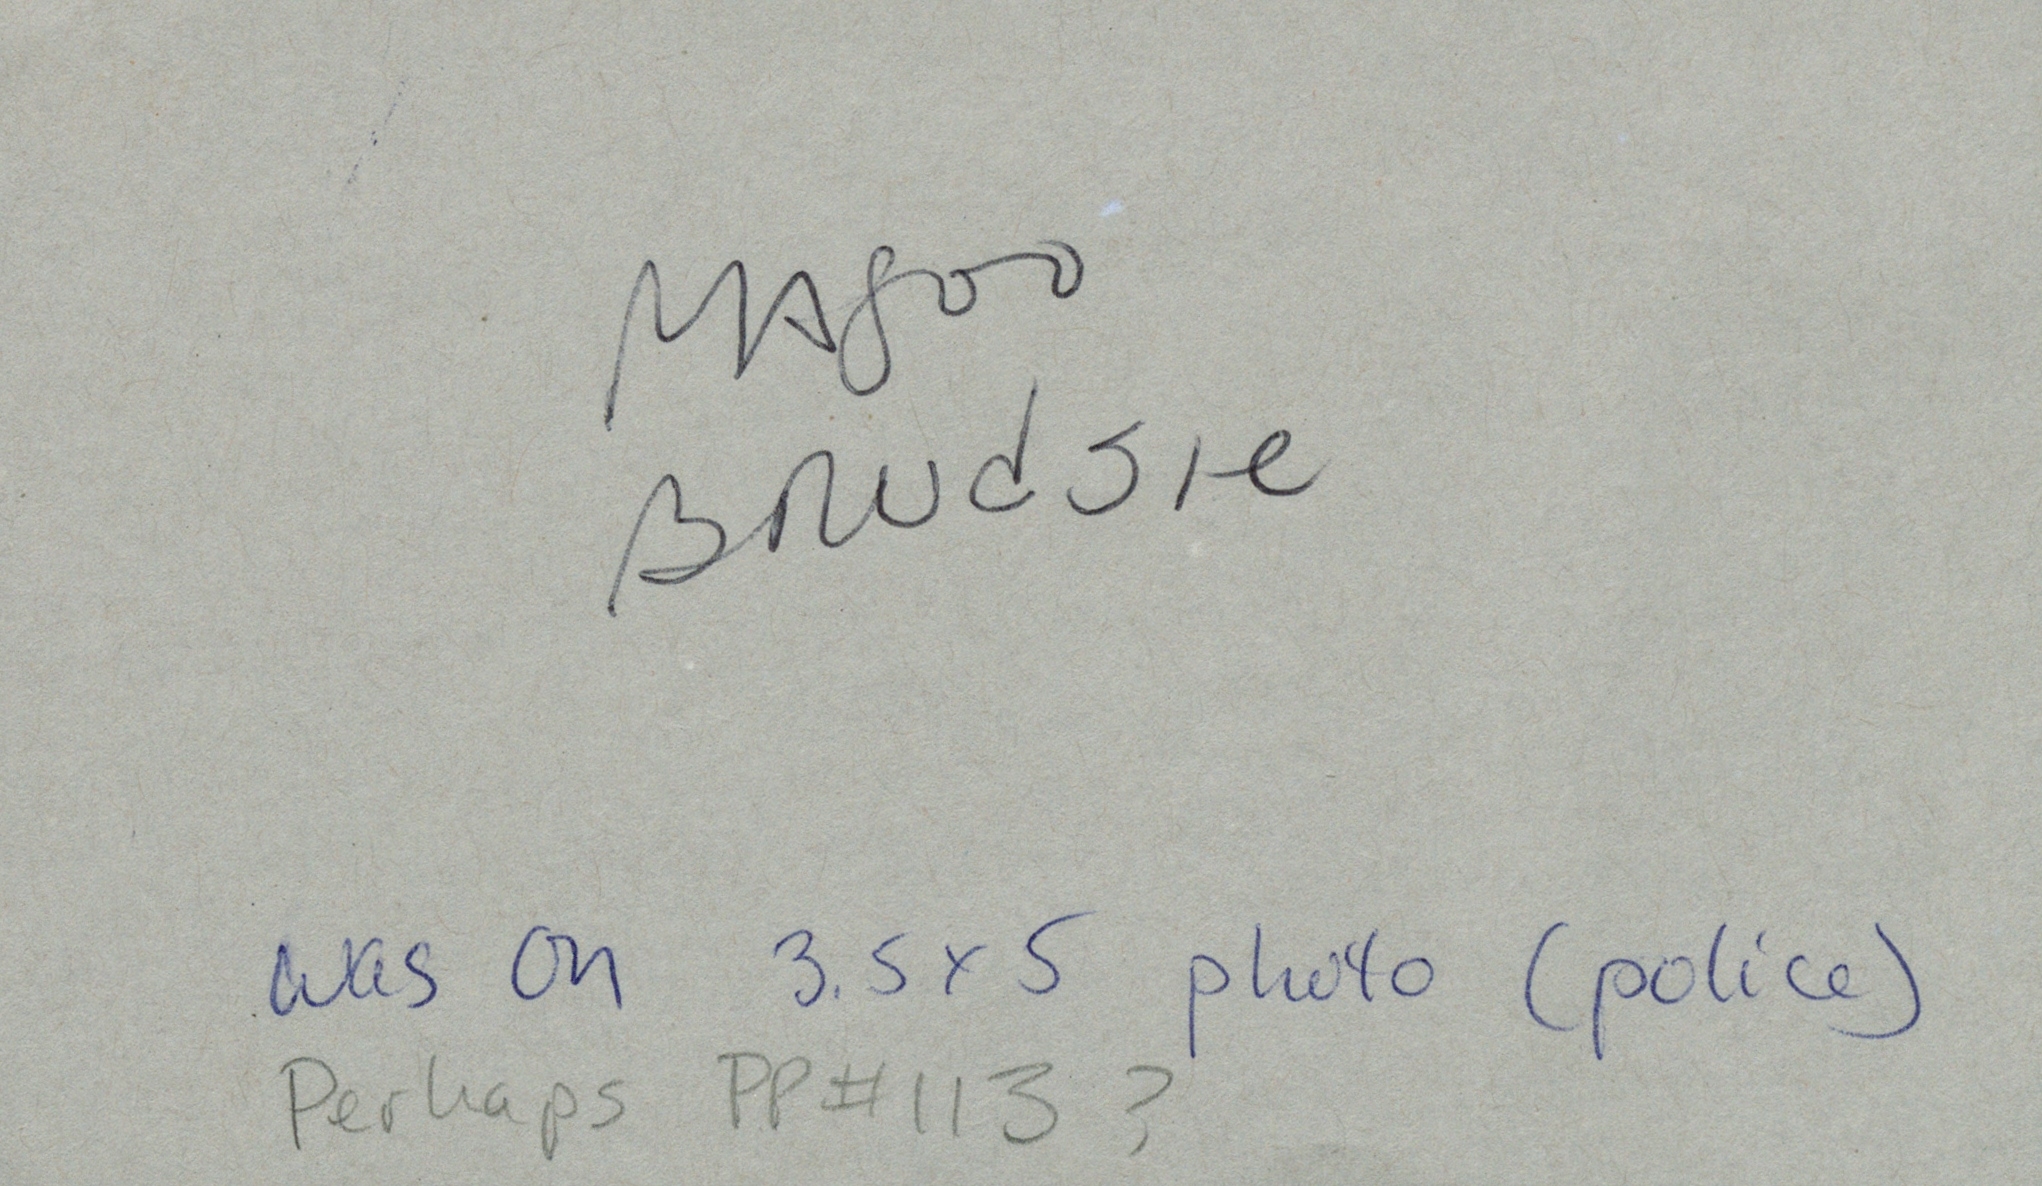 MAgoo
BRUdsie
was on 3.5x5 photo (police)
Perhaps PP#113?